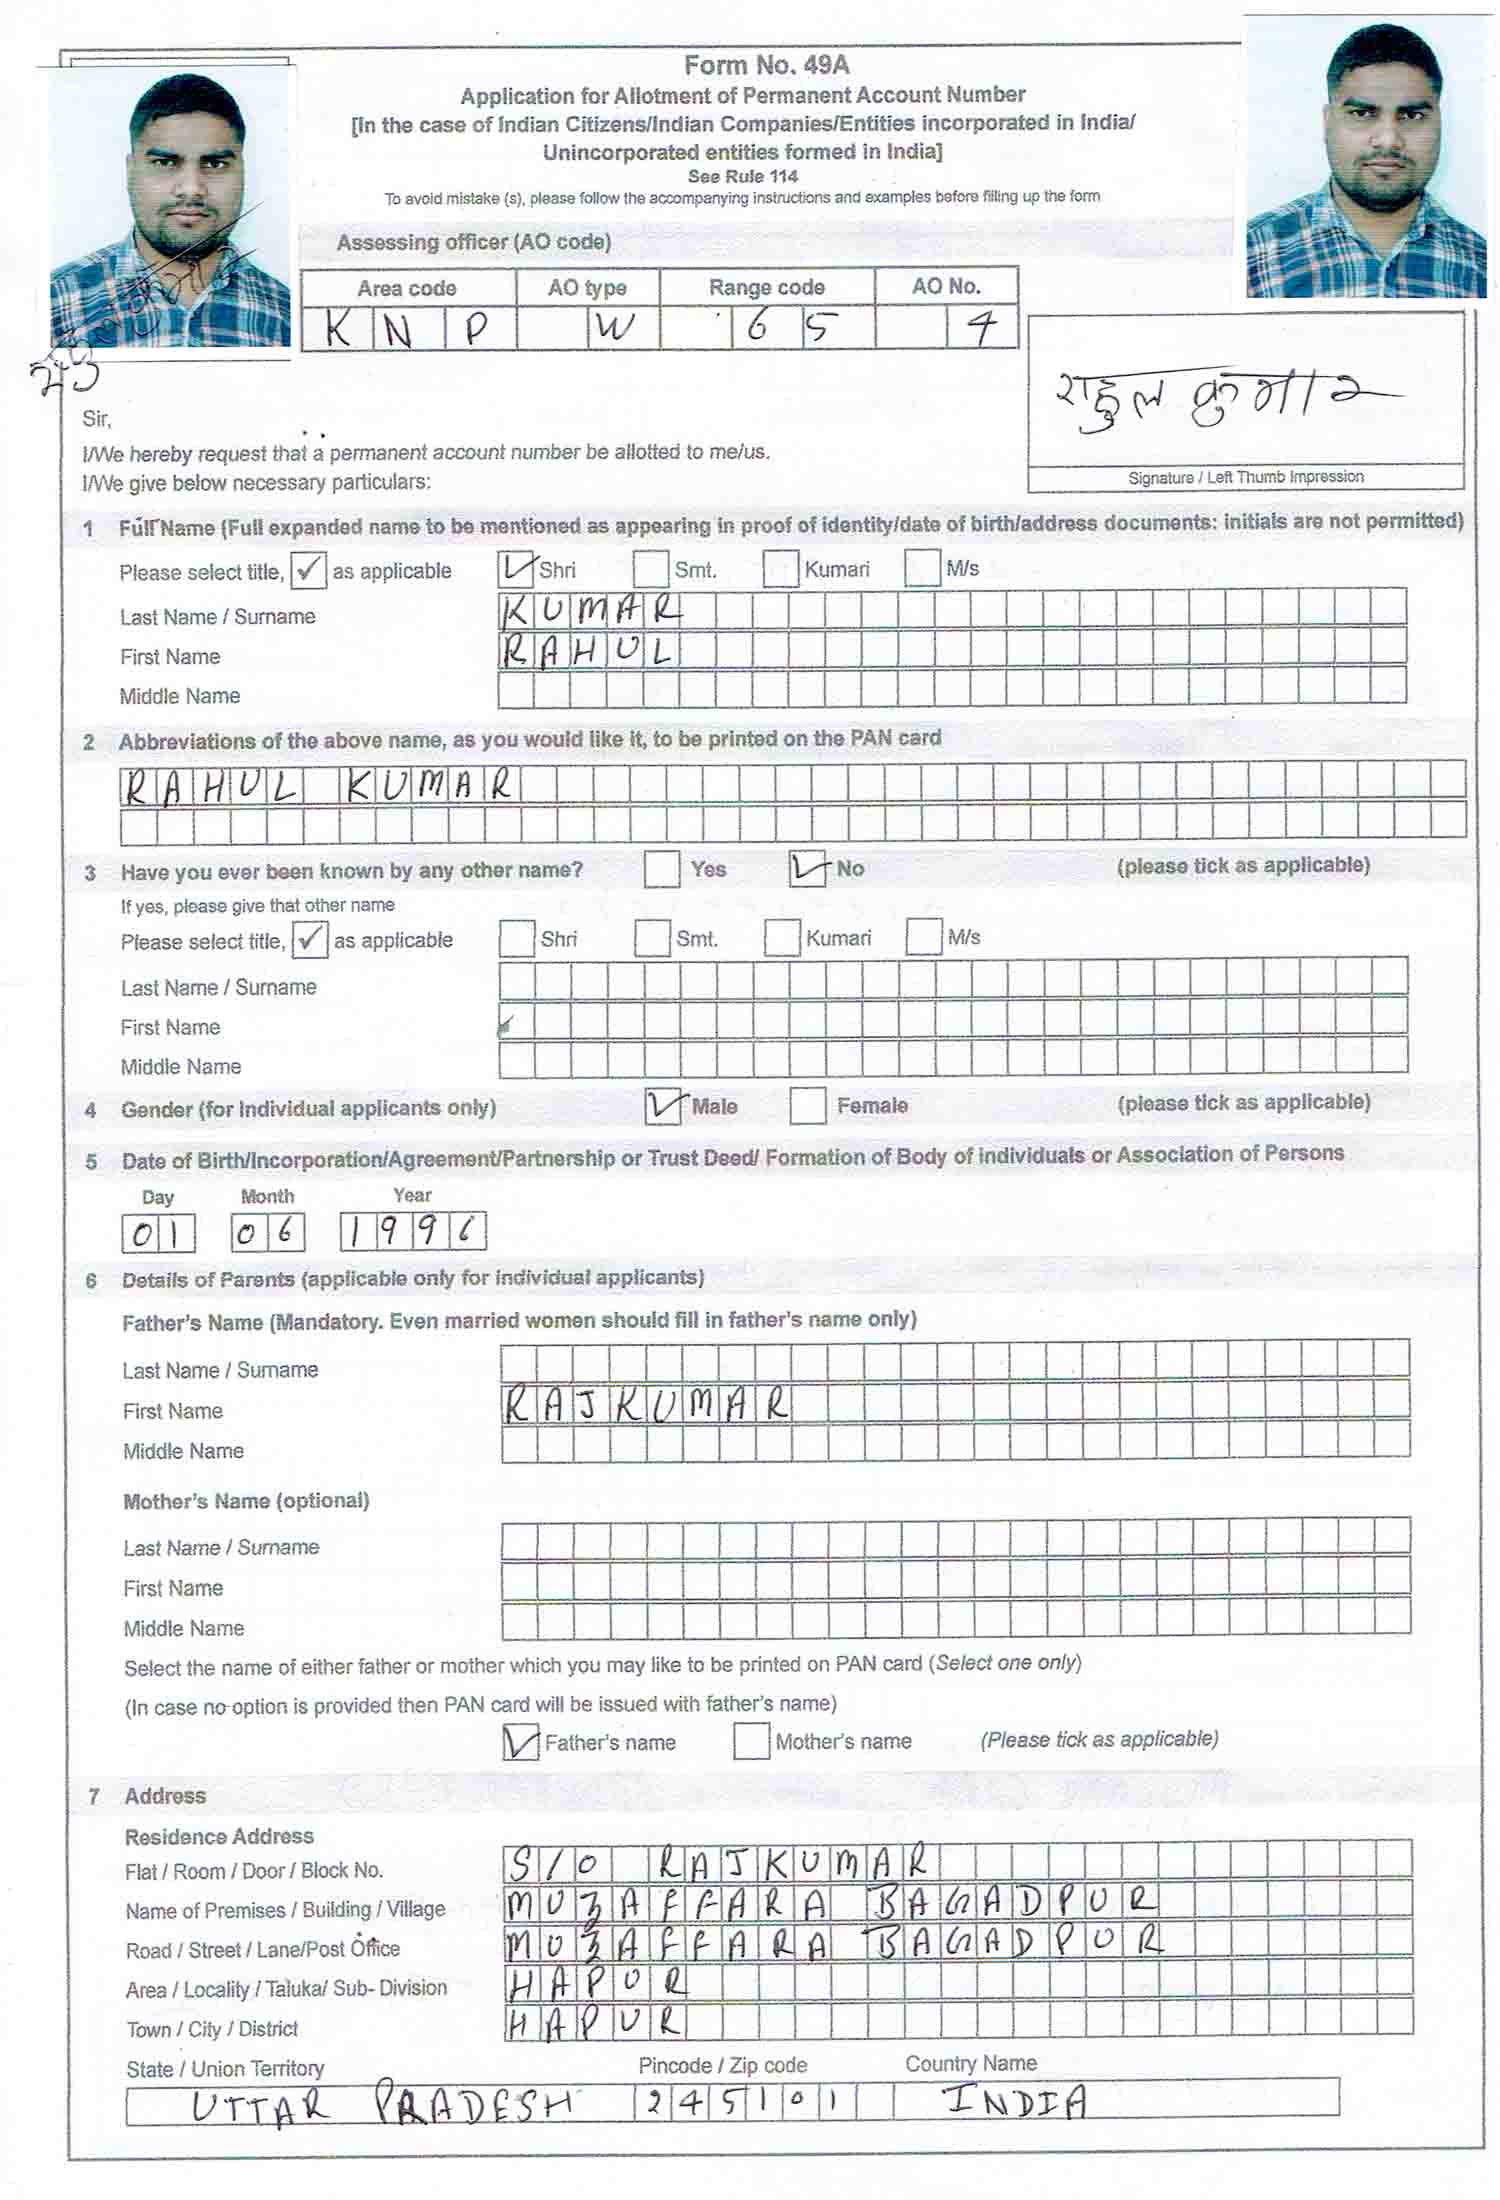 Form No. 49A
Application for Allotment of Permanent Account Number
[In the case of Indian Citizens/Indian Companies/Entities incorporated in India/
Unincorporated entities formed in India]
See Rule 114
To avoid mistake (s), please follow the accompanying instructions and examples before filling up the form
Assessing officer (AO code)
Area code AO type Range code AO No.
KNP W 65 4
राहुल कुमार
Signature / Left Thumb Impression
Sir,
I/We hereby request that a permanent account number be allotted to me/us.
I/We give below necessary particulars:
1 Full Name (Full expanded name to be mentioned as appearing in proof of identity/date of birth/address documents: initials are not permitted)
Please select title, ✓ as applicable ✓ Shri Smt. Kumari M/s
Last Name / Surname KUMAR
First Name RAHUL
Middle Name
2 Abbreviations of the above name, as you would like it, to be printed on the PAN card
RAHUL KUMAR
3 Have you ever been known by any other name? Yes ✓ No (please tick as applicable)
If yes, please give that other name
Please select title, ✓ as applicable Shri Smt. Kumari M/s
Last Name / Surname
First Name
Middle Name
4 Gender (for Individual applicants only) ✓ Male Female (please tick as applicable)
5 Date of Birth/Incorporation/Agreement/Partnership or Trust Deed/ Formation of Body of individuals or Association of Persons
Day Month Year
01 06 1996
6 Details of Parents (applicable only for individual applicants)
Father's Name (Mandatory. Even married women should fill in father's name only)
Last Name / Surname
First Name RAJKUMAR
Middle Name
Mother's Name (optional)
Last Name / Surname
First Name
Middle Name
Select the name of either father or mother which you may like to be printed on PAN card (Select one only)
(In case no option is provided then PAN card will be issued with father's name)
✓ Father's name Mother's name (Please tick as applicable)
7 Address
Residence Address
Flat / Room / Door / Block No. S/O RAJKUMAR
Name of Premises / Building / Village MUZAFFARA BAGADPUR
Road / Street / Lane/Post Office MUZAFFARA BAGADPUR
Area / Locality / Taluka/ Sub- Division HAPUR
Town / City / District HAPUR
State / Union Territory Pincode / Zip code Country Name
UTTAR PRADESH 245101 INDIA